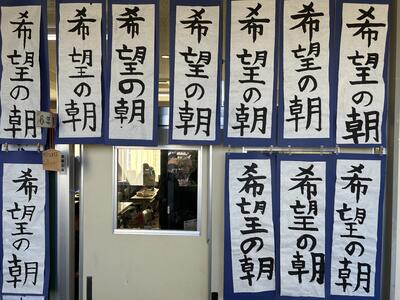 希望の朝
希望の朝
希望の朝
希望の朝
希望の朝
希望の朝
希望の朝
希望の朝
希望の朝
希望の朝
希望の朝